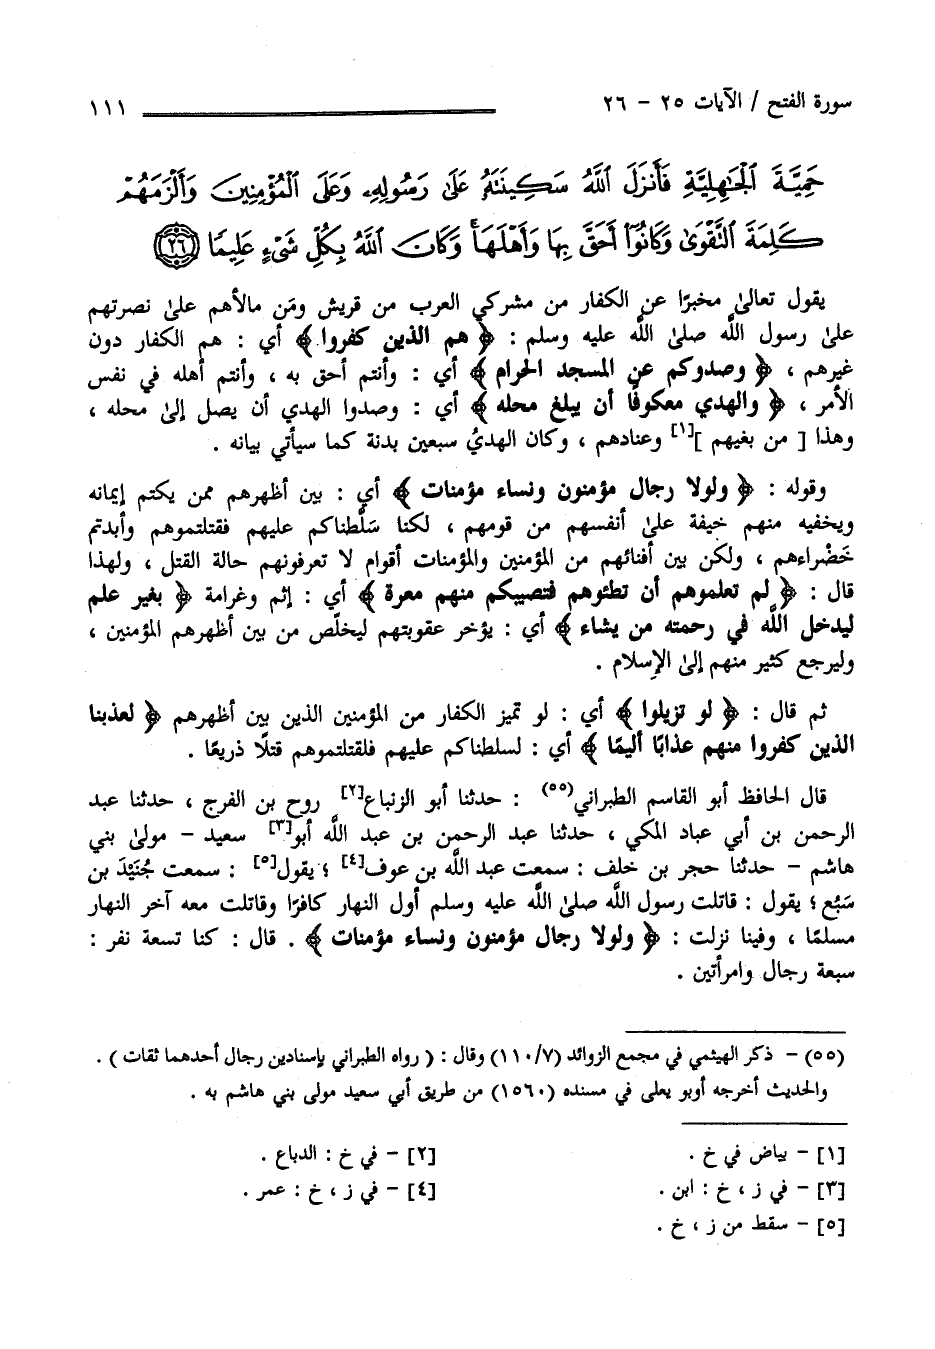 سورة الفتح / الآيات ٢٥ - ٢٦ ١١١
حَمِيَّةَ ٱلْجَٰهِلِيَّةِ فَأَنزَلَ ٱللَّهُ سَكِينَتَهُۥ عَلَىٰ رَسُولِهِۦ وَعَلَى ٱلْمُؤْمِنِينَ وَأَلْزَمَهُمْ
كَلِمَةَ ٱلتَّقْوَىٰ وَكَانُوٓا۟ أَحَقَّ بِهَا وَأَهْلَهَا ۚ وَكَانَ ٱللَّهُ بِكُلِّ شَىْءٍ عَلِيمًا ٢٦
يقول تعالىٰ مخبرًا عن الكفار من مشركي العرب من قريش ومَن مالأهم علىٰ نصرتهم
علىٰ رسول اللَّه صلىٰ اللَّه عليه وسلم : ﴿ هم الذين كفروا ﴾ أي : هم الكفار دون
غيرهم ، ﴿ وصدوكم عن المسجد الحرام ﴾ أي : وأنتم أحق به ، وأنتم أهله في نفس
الأمر ، ﴿ والهدي معكوفًا أن يبلغ محله ﴾ أي : وصدوا الهدي أن يصل إلىٰ محله ،
وهذا [ من بغيهم ][١] وعنادهم ، وكان الهديُ سبعين بدنة كما سيأتي بيانه .
وقوله : ﴿ ولولا رجال مؤمنون ونساء مؤمنات ﴾ أي : بين أظهرهم ممن يكتم إيمانه
ويخفيه منهم خيفة علىٰ أنفسهم من قومهم ، لكنا سَلَّطناكم عليهم فقتلتموهم وأبدتم
خَضْراءهم ، ولكن بين أفنائهم من المؤمنين والمؤمنات أقوام لا تعرفونهم حالة القتل ، ولهذا
قال : ﴿ لم تعلموهم أن تطئوهم فتصيبكم منهم معرة ﴾ أي : إثم وغرامة ﴿ بغير علم
ليدخل اللَّه في رحمته من يشاء ﴾ أي : يؤخر عقوبتهم ليخلّص من بين أظهرهم المؤمنين ،
وليرجع كثير منهم إلىٰ الإسلام .
ثم قال : ﴿ لو تزيلوا ﴾ أي : لو تميز الكفار من المؤمنين الذين بين أظهرهم ﴿ لعذبنا
الذين كفروا منهم عذابًا أليمًا ﴾ أي : لسلطناكم عليهم فلقتلتموهم قتلًا ذريعًا .
قال الحافظ أبو القاسم الطبراني(٥٥) : حدثنا أبو الزنباع[٢] روح بن الفرج ، حدثنا عبد
الرحمن بن أبي عباد المكي ، حدثنا عبد الرحمن بن عبد اللَّه أبو[٣] سعيد - مولىٰ بني
هاشم - حدثنا حجر بن خلف : سمعت عبد اللَّه بن عوف[٤] ؛ يقول[٥] : سمعت جُنَيْدَ بن
سَبُع ؛ يقول : قاتلت رسول اللَّه صلىٰ اللَّه عليه وسلم أول النهار كافرًا وقاتلت معه آخر النهار
مسلمًا ، وفينا نزلت : ﴿ ولولا رجال مؤمنون ونساء مؤمنات ﴾ . قال : كنا تسعة نفر :
سبعة رجال وامرأتين .
(٥٥) - ذكر الهيثمي في مجمع الزوائد (١١٠/٧) وقال : ( رواه الطبراني بإسنادين رجال أحدهما ثقات ) .
والحديث أخرجه أوبو يعلى في مسنده (١٥٦٠) من طريق أبي سعيد مولى بني هاشم به .
[١] - بياض في خ . [٢] - في خ : الدباع .
[٣] - في ز ، خ : ابن . [٤] - في ز ، خ : عمر .
[٥] - سقط من ز ، خ .